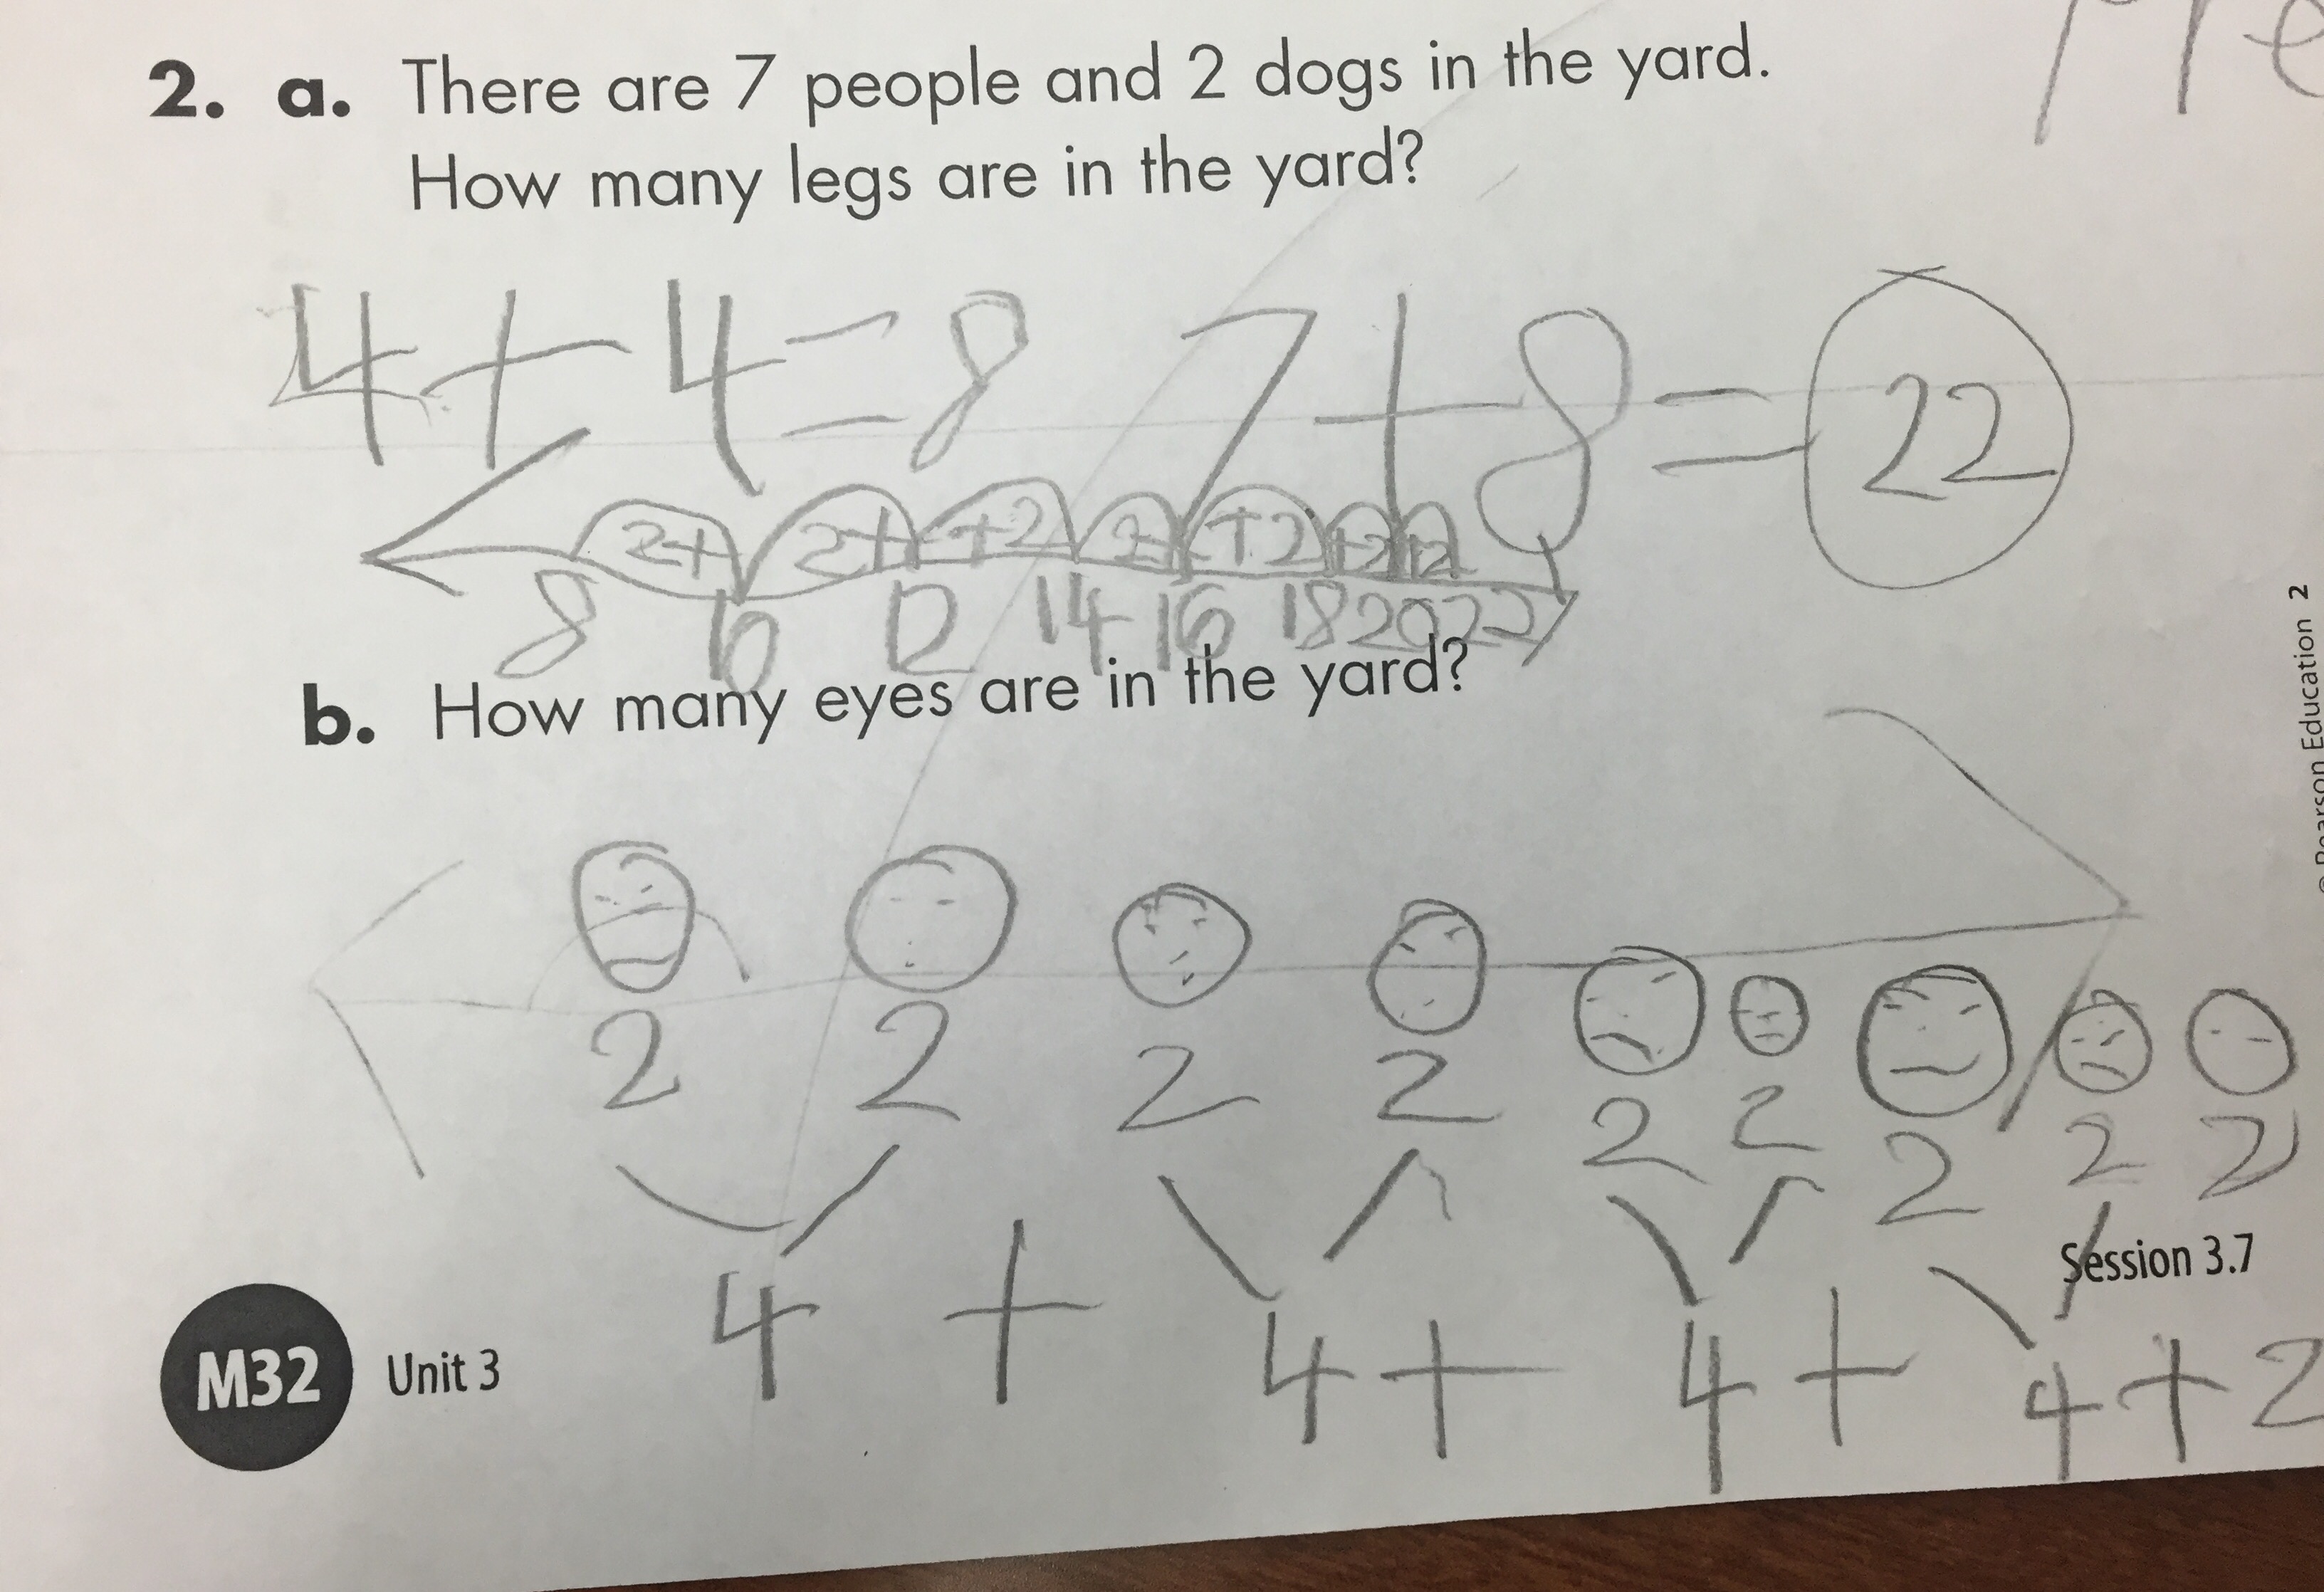 2. a. There are 7 people and 2 dogs in the yard.
How many legs are in the yard?
4+4=8 7+8=22
2+ 2+ +2 2+ +2 +2 +2
8 10 12 14 16 18 20 22
b. How many eyes are in the yard?
2 2 2 2 2 2 2 2 2
4 + 4 + 4 + 4 + 2
M32 Unit 3
Session 3.7
Pearson Education 2